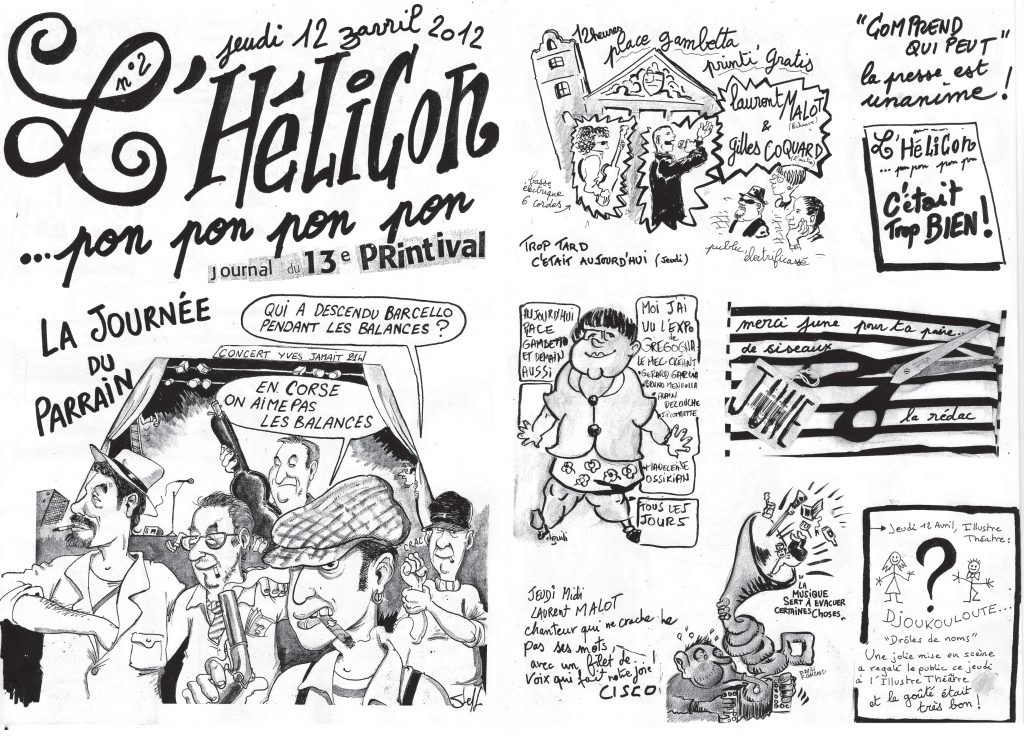 jeudi 12 zavril 2012
n°2
L'HéLiCon
...pon pon pon pon
Journal du 13e PRintival
LA JOURNÉE
DU
PARRAIN
QUI A DESCENDU BARCELLO
PENDANT LES BALANCES ?
CONCERT YVES JAMAIT 21H
EN CORSE
ON AIME PAS
LES BALANCES
CRAC
12 heures
place gambetta
printi' Gratis
laurent MALOT
&
gilles COQUARD
basse
électrique
6 cordes
public électrificassé
TROP TARD
C'ÉTAIT AUJOURD'HUI (Jeudi)
"COMPREND
QUI PEUT"
la presse est
unanime !
L'HéLiCon
...pon pon pon pon
C'était
Trop BIEN !
AUJOURD'HUI
PLACE
GAMBETTA
ET DEMAIN
AUSSI
MOI J'AI
VU L'EXPO
de
GREGOGNA
LE MEC-CRÉANT
GERARD GARCIA
BRUNO MENDOLLA
ALAIN
DELOUCHE
MADELEINE
OSSIKIAN
TOUS LES
JOURS
merci june pour ta paire...
de siseaux
JUNE
la rédac
JEUDI Midi
LAURENT MALOT
chanteur qui ne crache
pas ses mots,
avec un filet de
voix qui fait notre joie !
CISCO
"LA
MUSIQUE
SERT À ÉVACUER
CERTAINES CHOSES"
→ Jeudi 12 Avril, Illustre
Théatre :
?
DJOUKOULOUTE...
"Drôles de noms"
Une jolie mise en scène
a régalé le public ce jeudi
à l'Illustre Théâtre
et le goûté était
très bon !